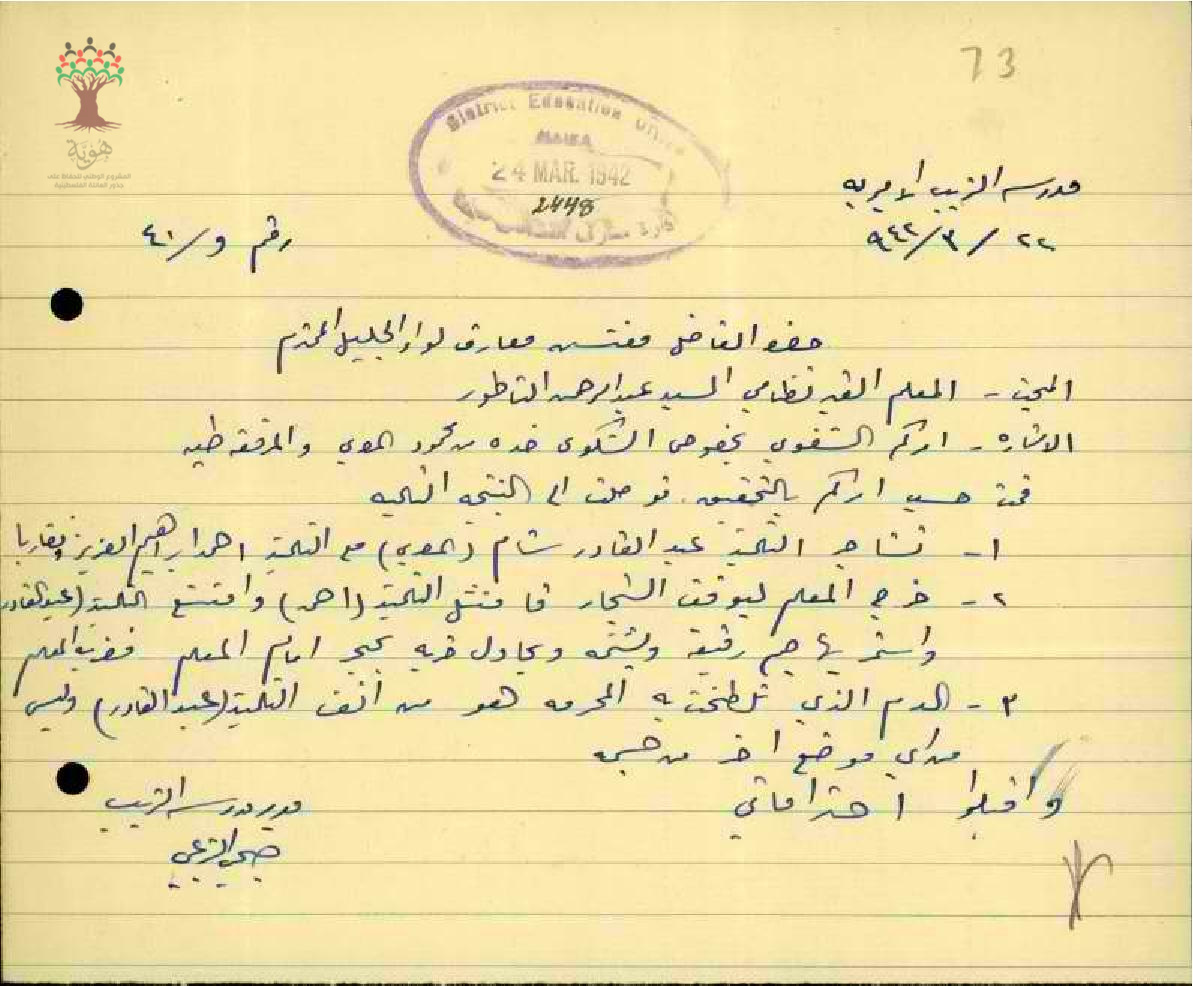 73
هوية
المشروع الوطني للحفاظ على
جذور العائلة الفلسطينية
District Education Office
HAIFA
24 MAR. 1942
2448
مدرسة الزيب الاميريه
٢٢ / ٣ / ٩٤٢
رقم و/٤١
حضرة الفاضل مفتش معارف لواء الجليل المحترم
المبحث - المعلم الغير نظامي السيد عبد الرحمن الناطور
الاشاره - امركم الشفوي بخصوص الشكوى ضده من محمود والمرفقه طيه
قمت حسب امركم بالتحقيق. فتوصلت الى النتيجه التاليه
١- تشاجر التلميذ عبد القادر شام مع التلميذ احمد ابراهيم العزيز وتضاربا
٢- خرج المعلم ليوقف الشجار فامتثل التلميذ (احمد) وامتنع التلميذ (عبد القادر
واستمر يهاجم رفيقه ويشتمه ويحاول ضربه بحجر امام المعلم فضربه المعلم
٣- الدم الذي تلطخت به المحرمه هو من أنف التلميذ (عبد القادر) وليس
من اي موضع اخر من جسمه
واقبلوا احتراماتي
مدير مدرسة الزيب